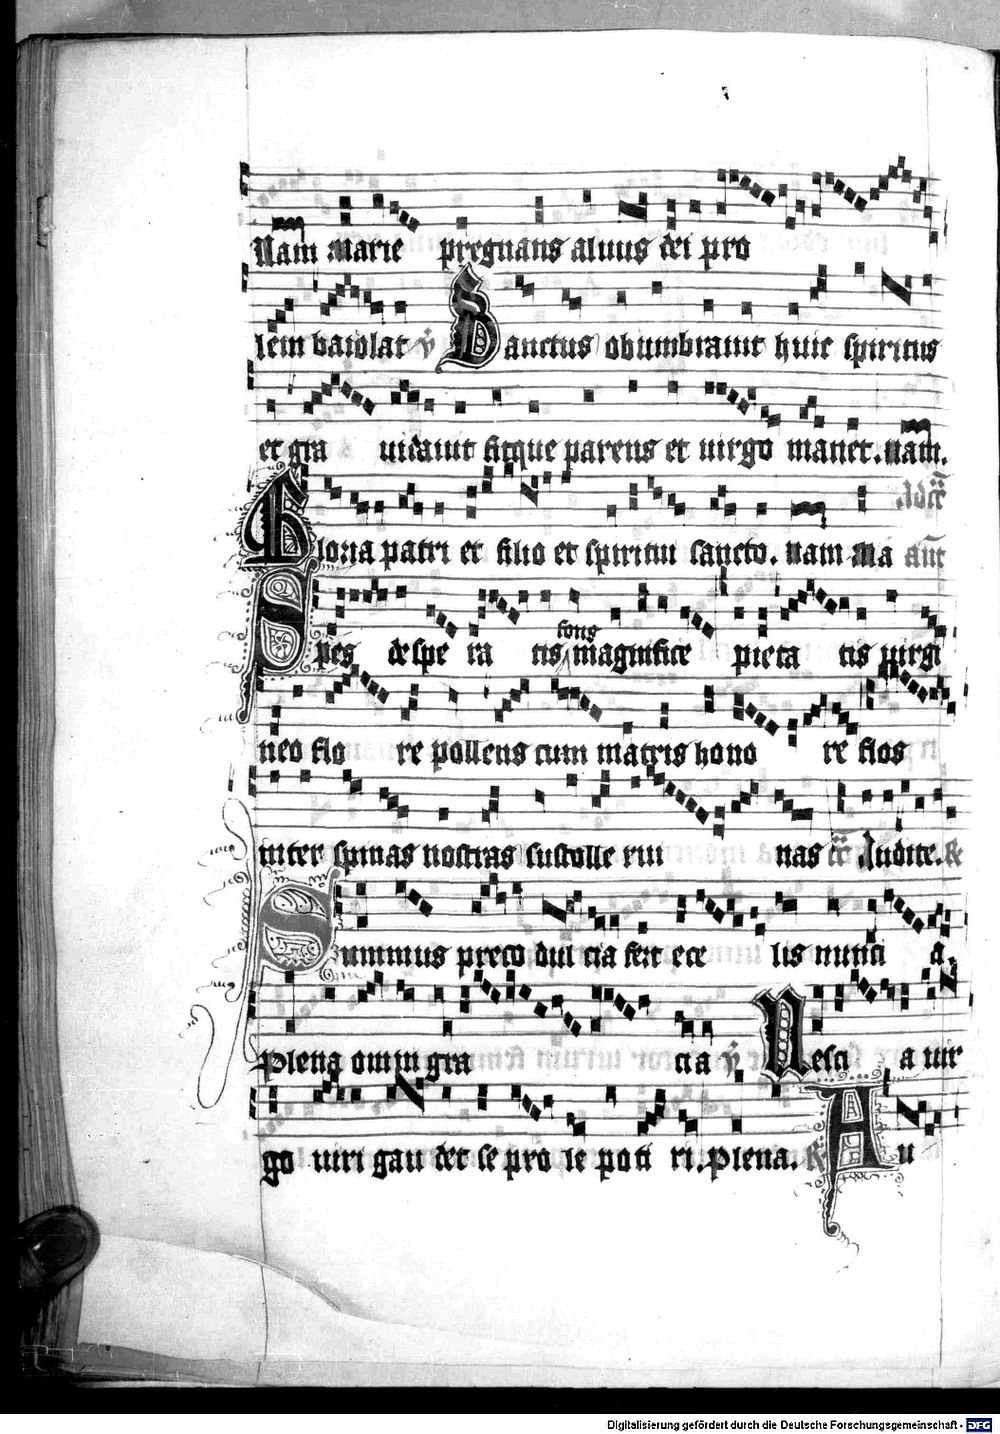 Nam marie pregnans aluus dei pro
lem baiolat ℣ Sanctus obumbrauit huic spiritus
et gra uidauit sitque parens et uirgo manet. nam.
Gloria patri et filio et spiritui sancto. nam ma
Spes despe ra tis fons magnifice pieta tis uirgi
neo flo re pollens cum matris hono re flos
inter spinas nostras sustolle rui nas
Summus preco dul cia fert ece lis nunci a.
Plena omni gra cia ℣ Nesci a uir
go uiri gau det se pro le poti ri. Plena. Au
Digitalisierung gefördert durch die Deutsche Forschungsgemeinschaft - DFG